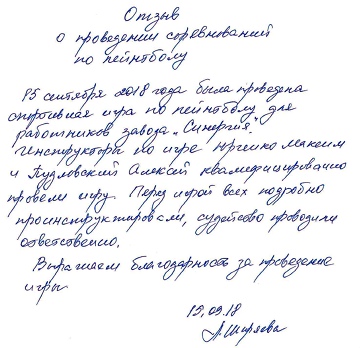 Отзыв
о проведении соревнований
по пейнтболу
15 сентября 2018 года была проведена
спортивная игра по пейнтболу для
работников завода „Синергия".
Инструкторы по игре Юрченко Максим
и Пудловский Алексей квалифицированно
провели игру. Перед игрой всех подробно
проинструктировали, судейство проводили
ответственно.
Выражаем благодарность за проведение
игры
15.09.18
Л. Ширяева